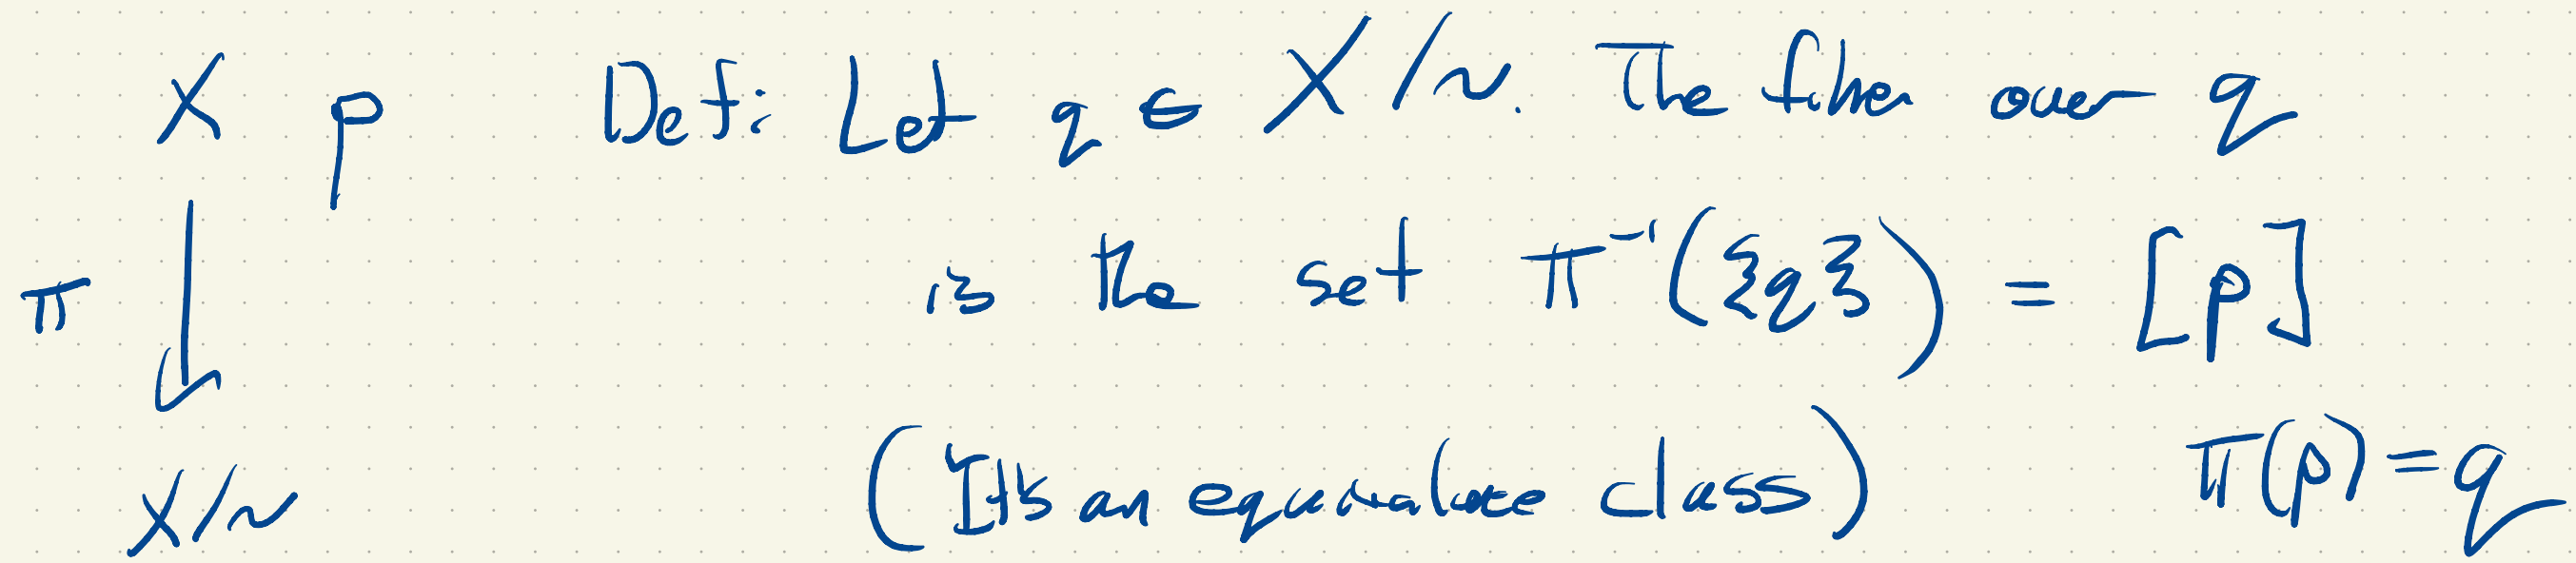 X p Def: Let q ∈ X/~. The fiber over q
π is the set π⁻¹({q}) = [p]
X/~ (It's an equivalence class) π(p)=q